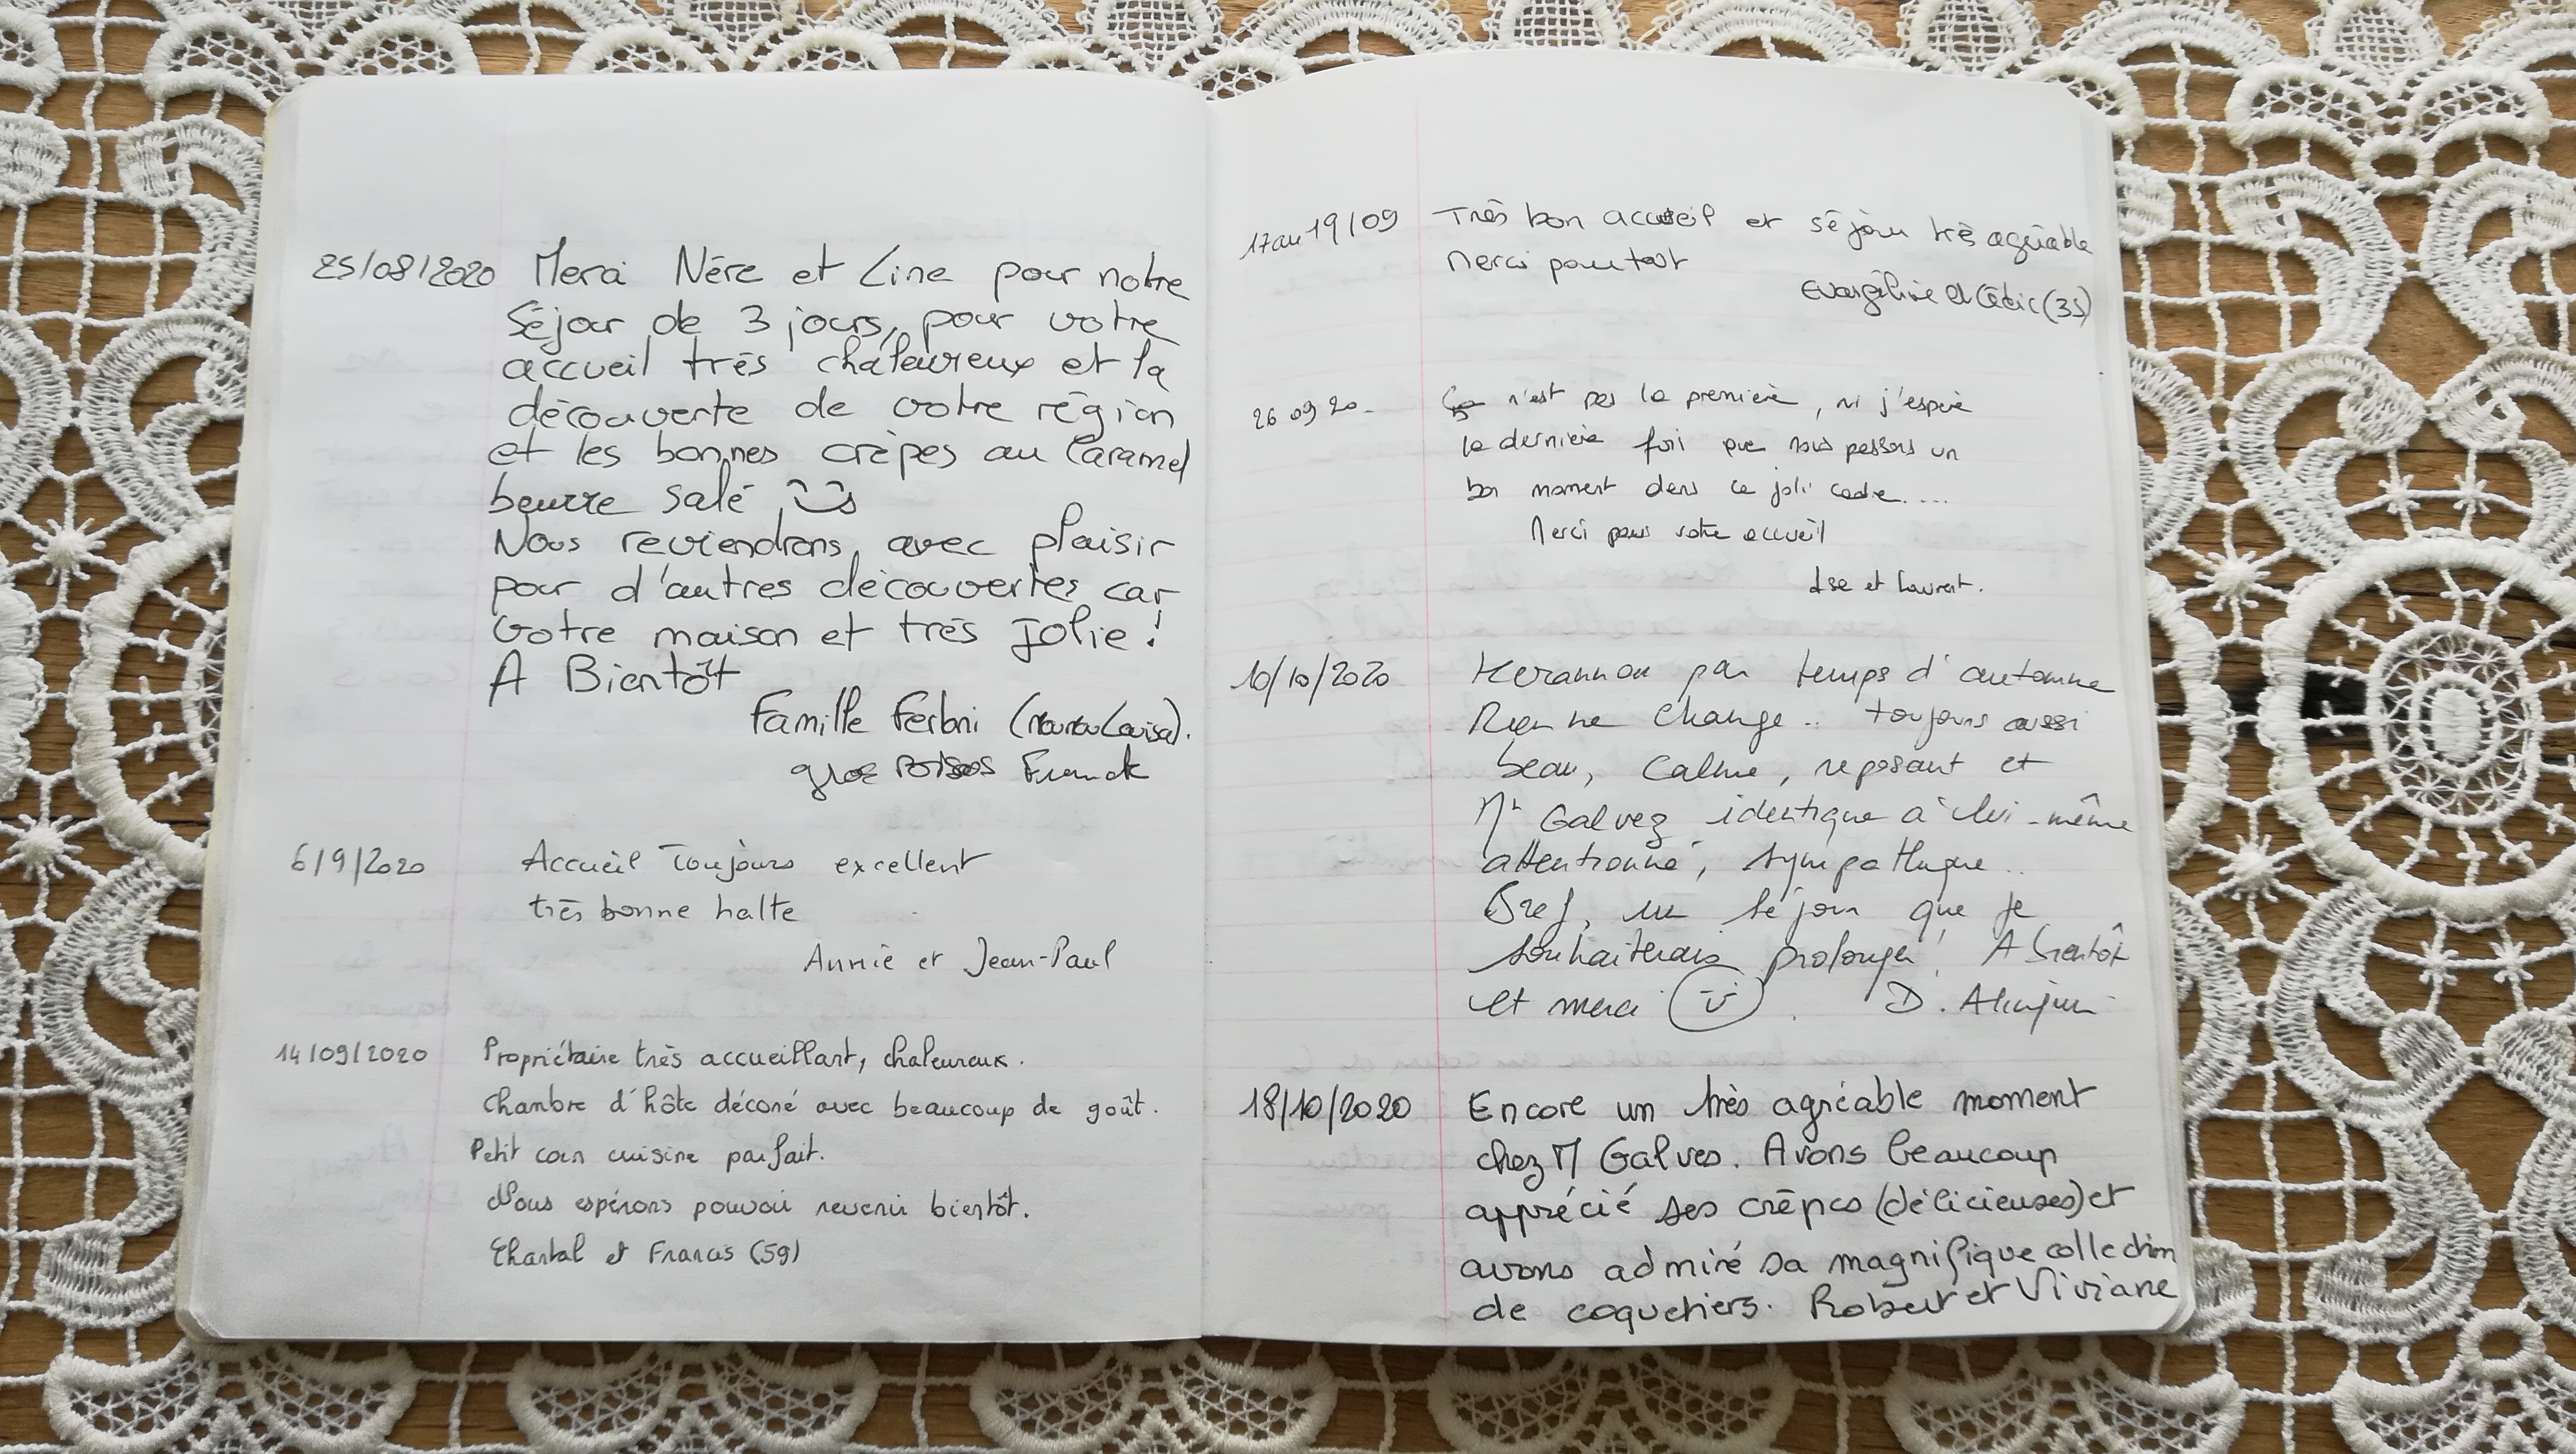 25/08/2020 Merci Nére et Line pour notre
Séjour de 3 jours, pour votre
accueil très chaleureux et la
découverte de votre région
et les bonnes crèpes au Caramel
beurre salé
Nous reviendrons, avec plaisir
pour d'autres découvertes car
Votre maison et très Jolie !
A Bientôt
Famille Ferbni (Louisa).
gros Franck
6/9/2020 Accueil Toujours excellent
très bonne halte
Annie et Jean-Paul
14/09/2020 Propriétaire très accueillant, chaleureux.
Chambre d'hôte décoré avec beaucoup de goût.
Petit coin cuisine parfait.
Nous espérons pouvoir revenir bientôt.
Chantal et Francis (59)
17 au 19/09 Très bon accueil et séjour très agréable
Merci pour tout
Evangéline et Cédric (35)
26 09 20. n'est pas la première, ni j'espère
la dernière fois que nous passons un
bon moment dans ce joli cadre....
Merci pour votre accueil
Ise et Laurent.
10/10/2020 Kerannou par temps d'automne
Rien ne change .. toujours aussi
beau, Calme, reposant et
Mr Galvez identique à lui-même
attentionné, sympathique..
Bref, un séjour que je
souhaiterais prolonger ! A bientôt
et merci . D.
18/10/2020 Encore un très agréable moment
chez M Galves. Avons beaucoup
apprécié ses crêpes (délicieuses) et
avons admiré sa magnifique collection
de coquetiers. Robert et Viviane